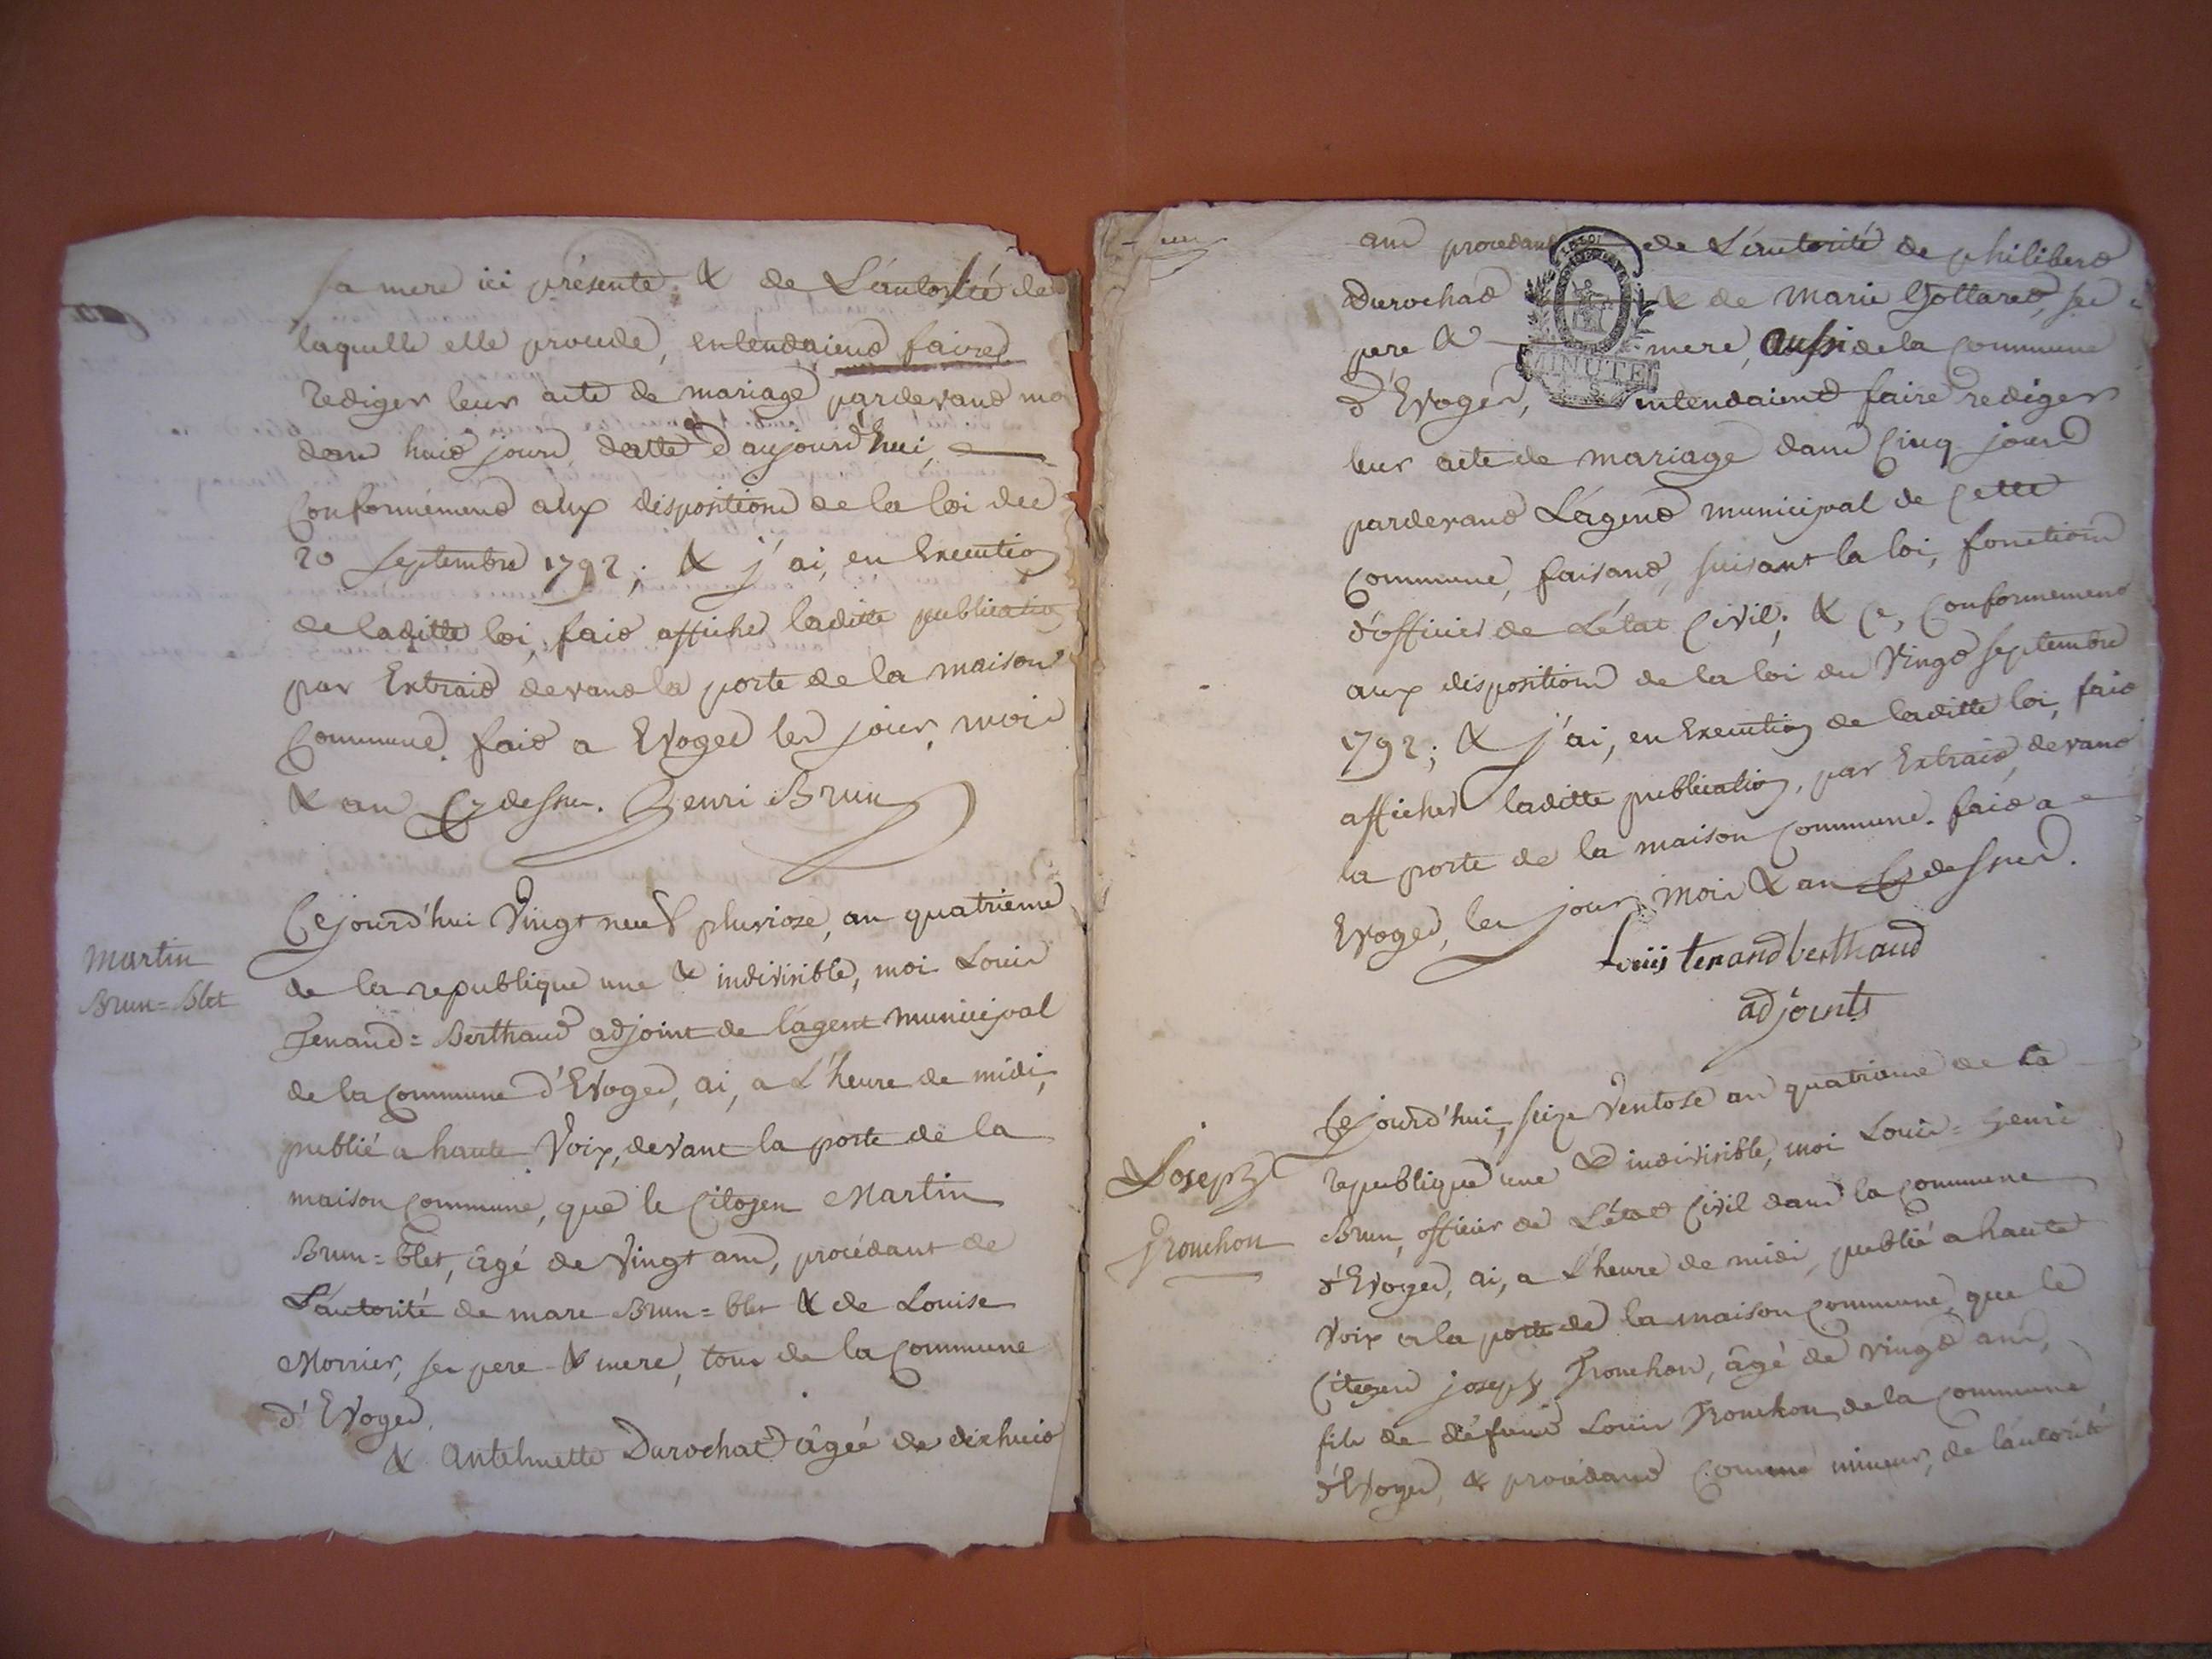 sa mere ici présente & de L'autorité de
laquelle elle procede, entendaient faire
rediger leur acte de mariage pardevant mo
dans huit jours datte d'aujourd'hui,
Conformément aux dispositions de la loi du
20 Septembre 1792; & j'ai, en Execution
de laditte loi, fait afficher laditte publication
par Extrait devant la porte de la maison
Commune. fait a Evoges les jour, mois
& an Cy dessus. Henri Brun
Martin
Brun=Blet
Cejourd'hui Vingt neuf pluviose, an quatrieme
de la republique une & indivisible, moi Louis
Tenand=Berthaud adjoint de l'agent municipal
de la Commune d'Evoges, ai, a L'heure de midi,
publié a haute Voix, devant la porte de la
maison Commune, que le Citoyen Martin
Brun=blet, âgé de Vingt ans, procédant de
L'autorité de marc Brun=blet & de Louise
Morrier, ses pere & mere, tous de la Commune
d'Evoges.
& Anthelmette Durochat âgée de dixhuit
ans procedant de L'autorité de philibert
Durochat & de Marie Gottaret, ses
pere & mere, aussi de la Commune
d'Evoges, entendaient faire rediger
leur acte de mariage dans Cinq jours
pardevant L'agent municipal de Cette
Commune, faisant, suivant la loi, fonctions
d'officier de L'état Civil; & Ce, Conformement
aux dispositions de la loi du Vingt septembre
1792; & j'ai, en Execution de laditte loi, fait
afficher laditte publication, par Extrait, devant
la porte de la maison Commune. fait a
Evoges, les jour, mois & an Cy dessus.
Louis tenand berthaud
adjoints
MINUTE
Joseph
Tronchon
Cejourd'hui, seize Ventose an quatrieme de la
republique une & indivisible, moi Louis=henri
Brun, officier de L'état Civil dans la Commune
d'Evoges, ai, a L'heure de midi, publié a haute
Voix a la porte de la maison Commune, que le
Citoyen joseph Tronchon, âgé de vingt ans,
fils de défunt Louis Tronchon de la Commune
d'Evoges, & procédant Comme mineur, de l'autorité